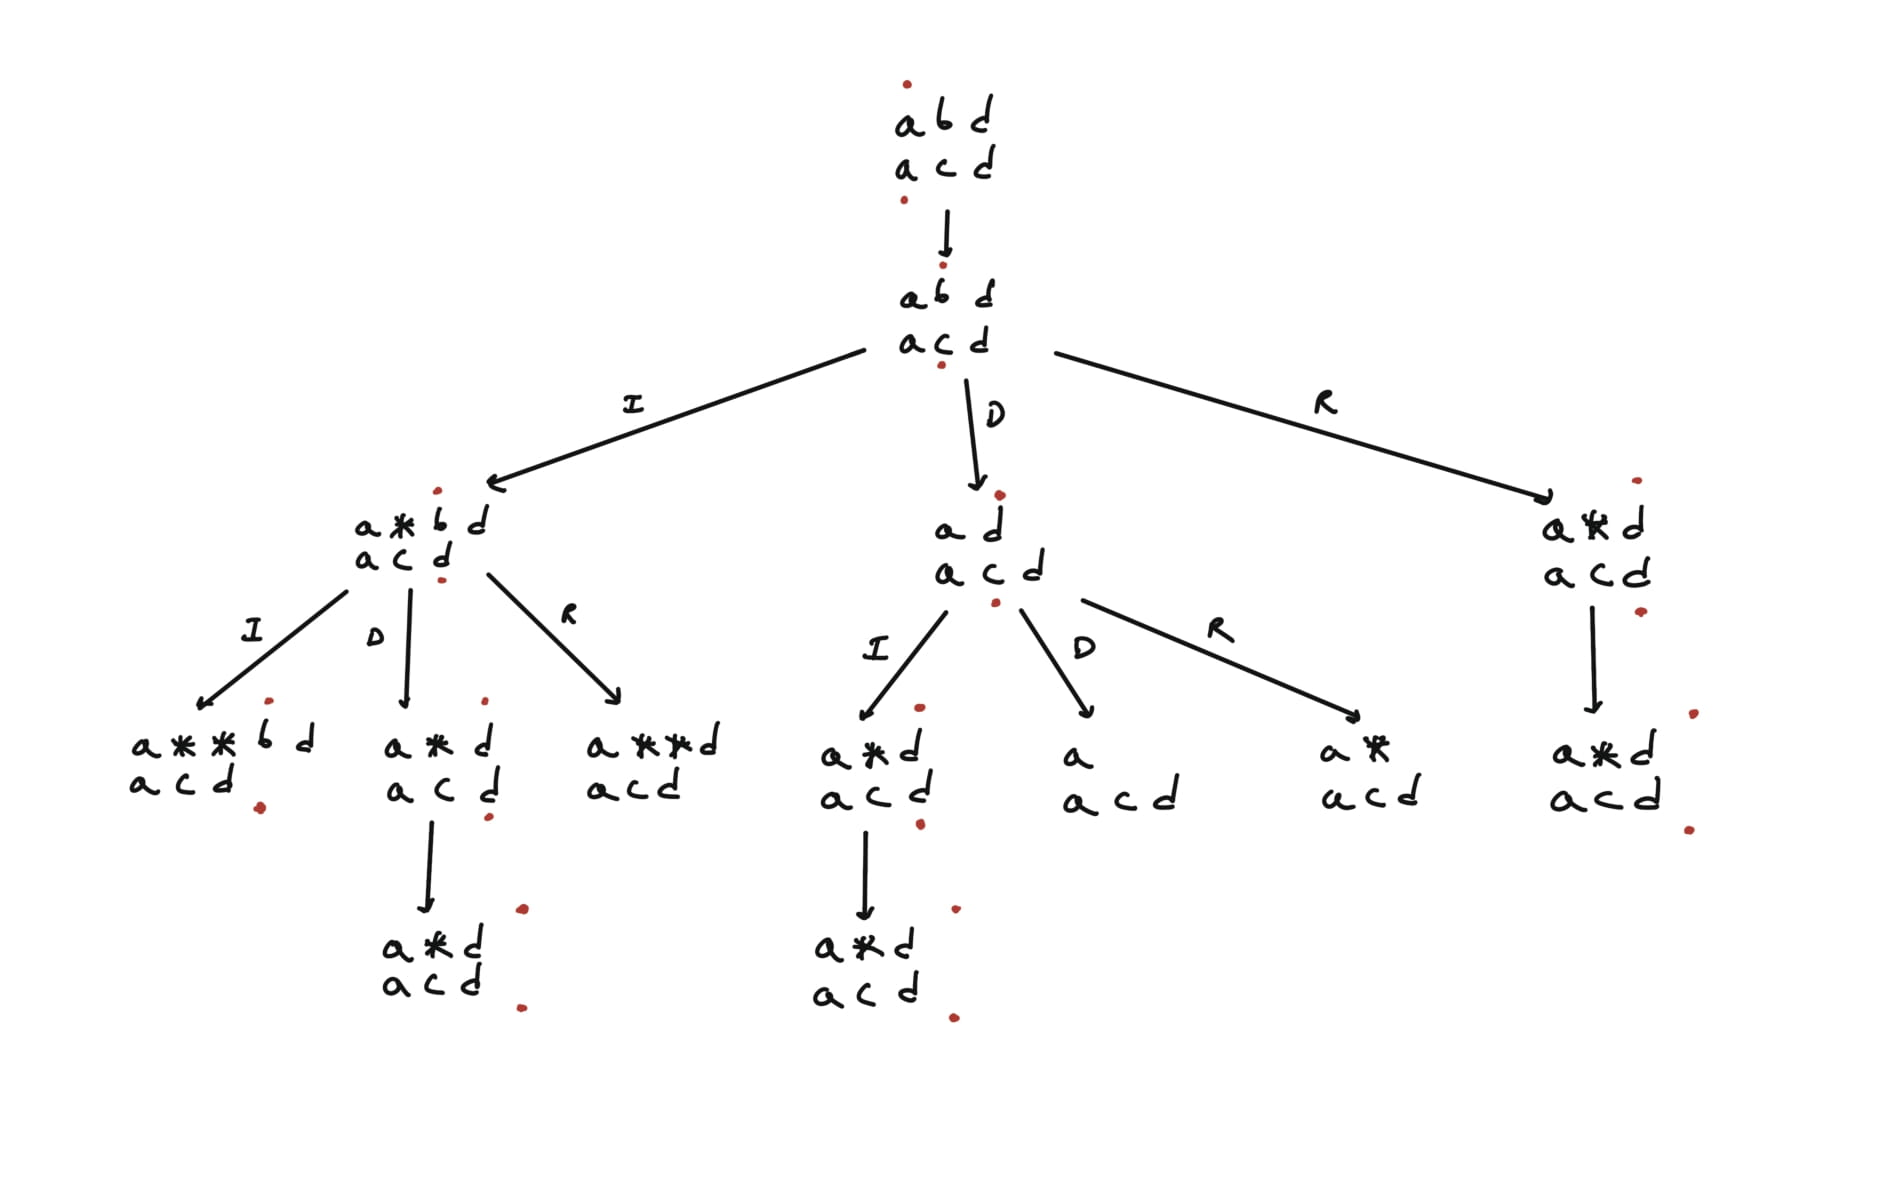 a b d
a c d
a b d
a c d
I
D
R
a * b d
a c d
a d
a c d
a * d
a c d
I
D
R
I
D
R
a * * b d
a c d
a * d
a c d
a * * d
a c d
a * d
a c d
a
a c d
a *
a c d
a * d
a c d
a * d
a c d
a * d
a c d